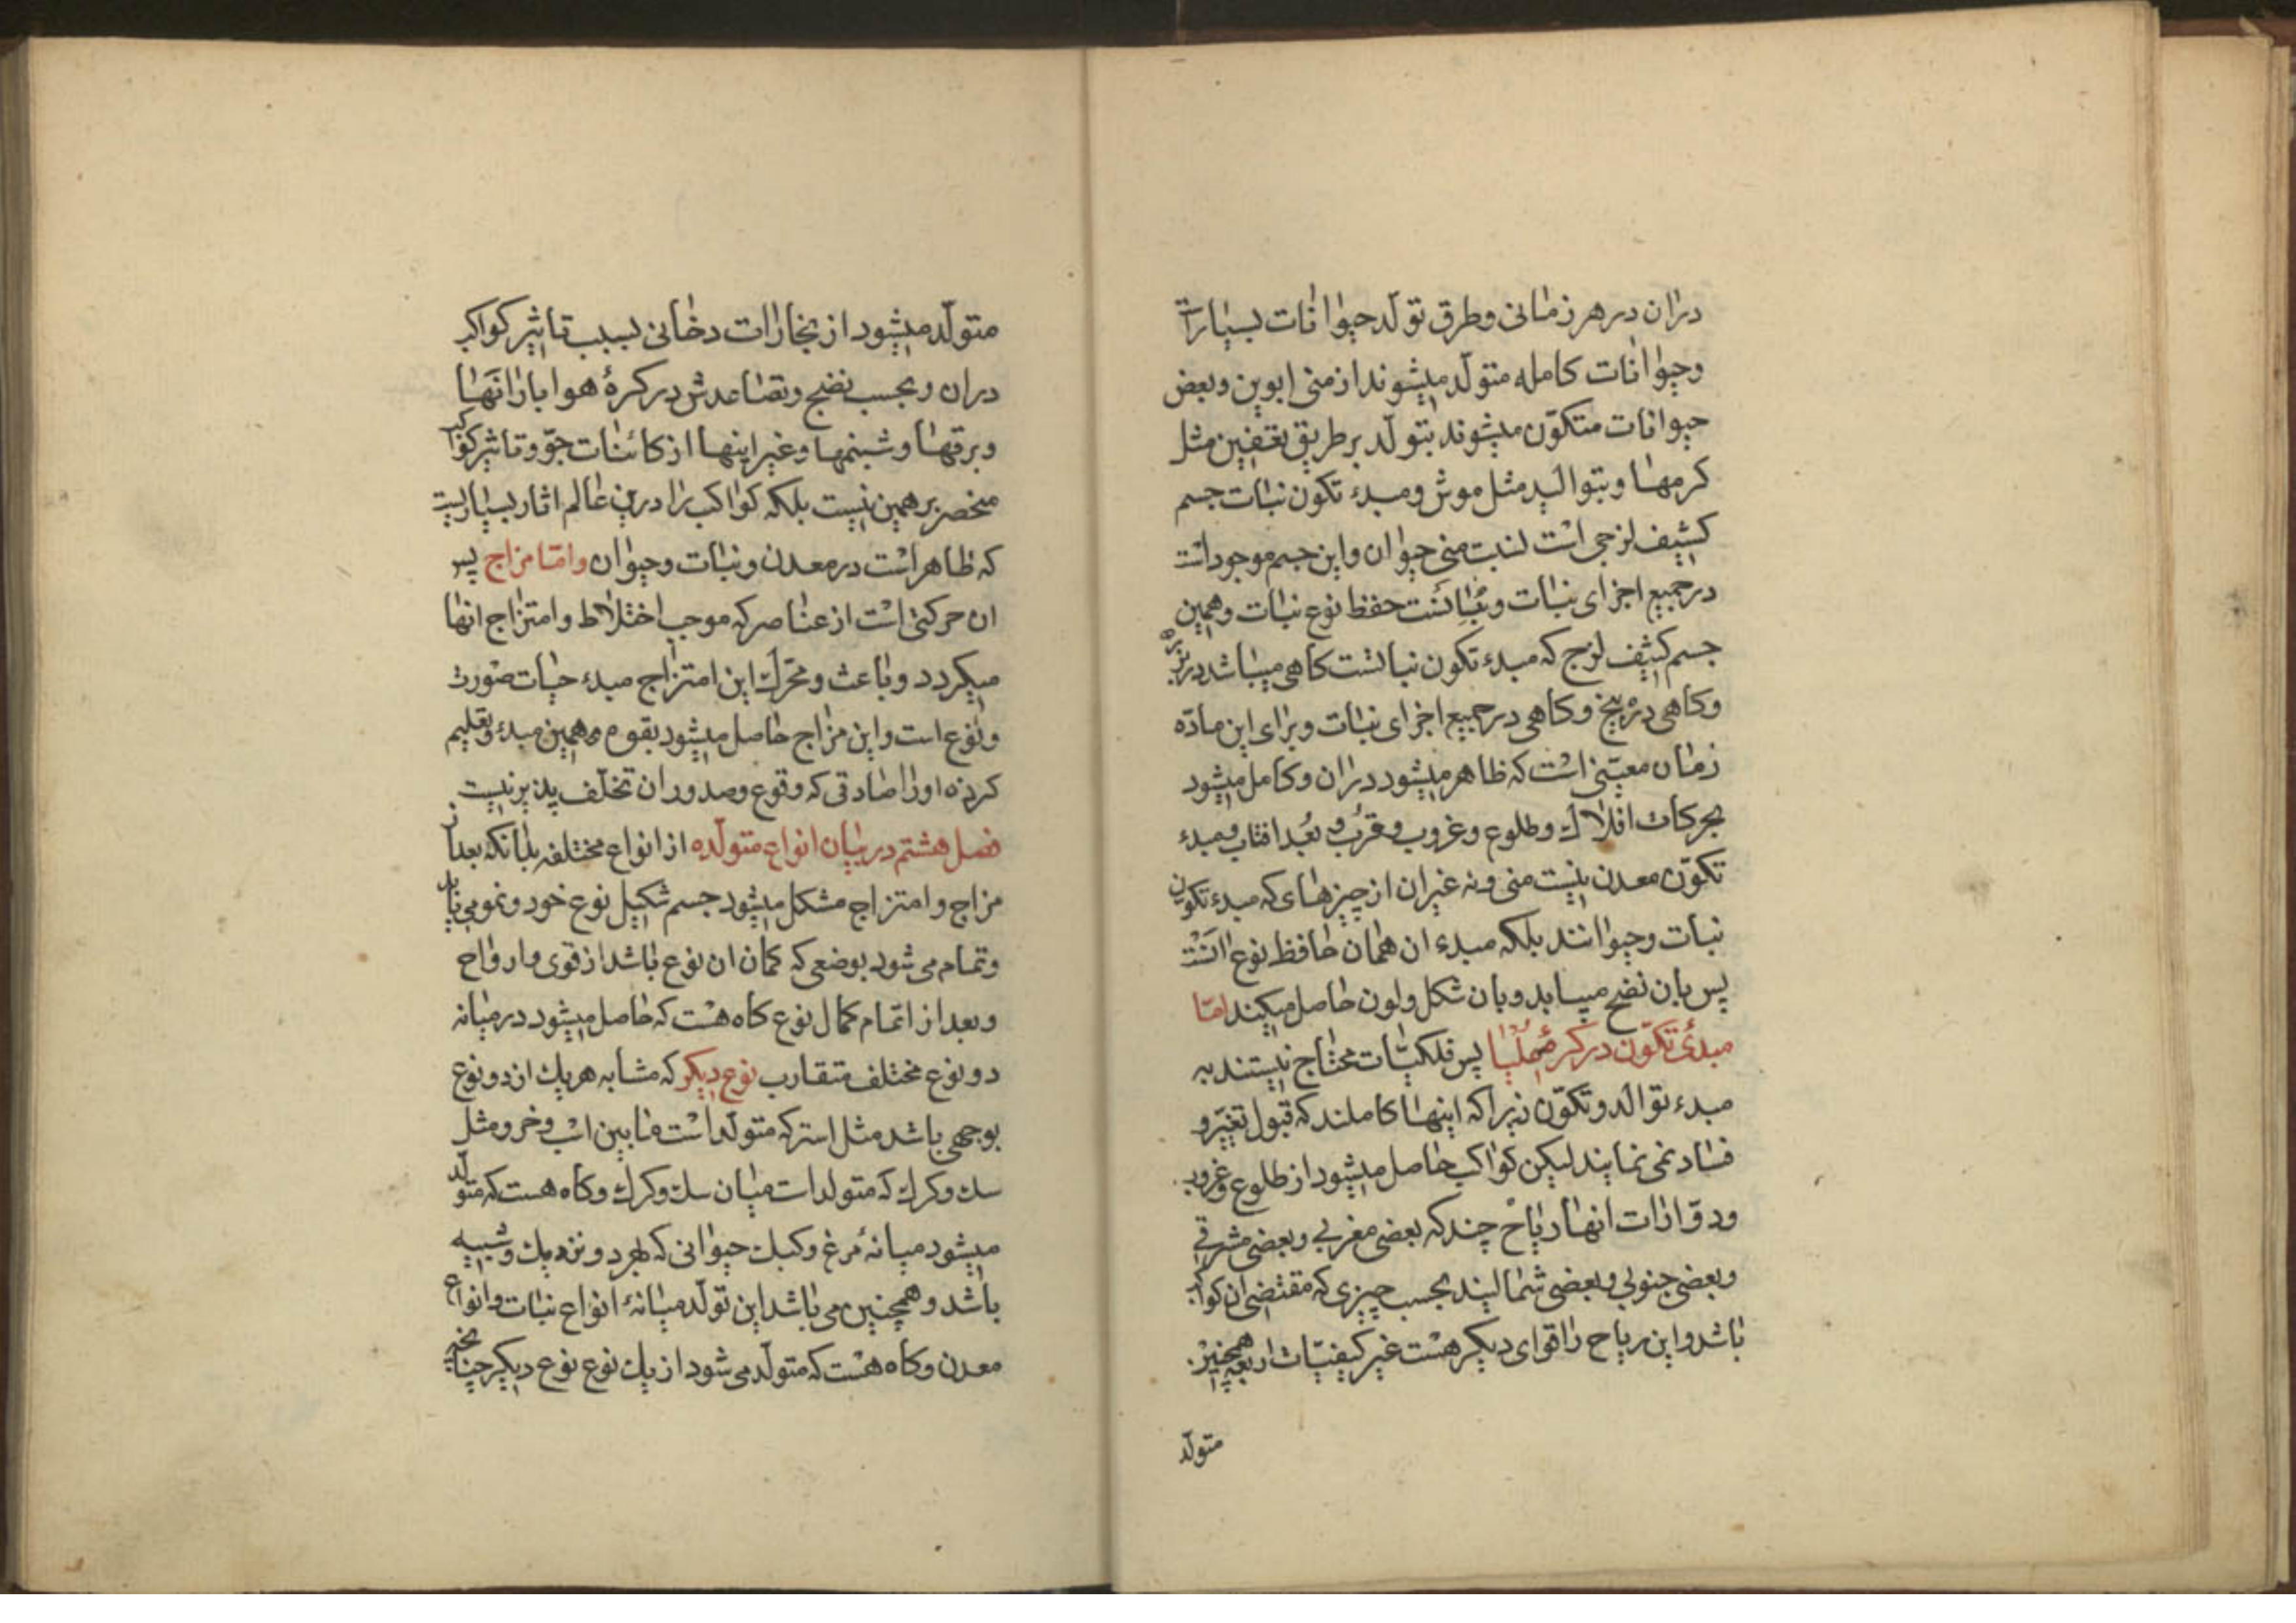 دران در هر زمانی و طرق تولد حیوانات بسیارات
وحیوانات کامله متولد میشوند از منی ابوین و بعض
حیوانات متکوّن میشوند بتولد بر طریق تعفین مثل
کرمها و بتوالید مثل موش و مبدء تکون نبات جسم
کثیف لزجی است لنبت منی حیوان و این جسم موجود است
در جمیع اجزای نبات و حفظ نوع نبات و همین
جسم کثیف لزج که مبدء تکون نباتست کاهی میباشد در بزره
و کاهی در بیخ و کاهی در جمیع اجزای نبات و برای این مادّه
زمان معیّنی است که ظاهر میشود دران و کامل میشود
بحرکات افلاک و طلوع و غروب و قرب و بُعد افتاب و مبدء
تکوّن معدن نیست منی و نه غیر ان از چیزهای که مبدء تکون
نبات و حیوانند بلکه مبدء ان همان حافظ نوع انست
پس بان نضج مییابد و بان شکل و لون حاصل میکند امّا
مبدئ تکوّن در پس فلکیّات محتاج نیستند به
مبدء توالد و تکوّن زیرا که اینها کاملند که قبول تغیّر و
فساد نمی نمایند لیکن کواکب حاصل میشود از طلوع و غروب
و دوّارات انها ریاح چند که بعضی مغربی و بعضی مشرقی
و بعضی جنوبی و بعضی شمالیند بحسب چیزی که مقتضی ان کواکب
باشد و این ریاح را قوای دیکر هست غیر کیفیّات اربعه همچنین
متولّد
متولّد میشود از بخارات دخانی بسبب تاثیر کواکب
دران و بحسب نضج و تصاعدش در کرۀ هوا بارانها
و برقها و شبنمها و غیر اینها از کائنات جوّ و تاثیر کواکب
منحصر بر همین نیست بلکه کواکب را درین عالم اثار بسیاریست
که ظاهر است در معدن و نبات و حیوان و امّا مزاج پس
ان حرکتی است از عناصر که موجب اختلاط و امتزاج انها
میکردد و باعث و محرّک این امتزاج مبدء حیات صورت
و نوع است و این مزاج حاصل میشود بقوه و همین مبدء و تعلیم
کرده او را صادقی که وقوع و صدور ان تخلّف پذیر نیست
فصل هشتم در بیان انواع متولّده از انواع مختلفه بدانکه بعد از
مزاج و امتزاج مشکل میشود جسم شکیل نوع خود و نمو می یابد
و تمام می شود بوضعی که کمان ان نوع باشد از قوی و ارواح
و بعد از اتمام کمال نوع کاه هست که حاصل میشود در میانه
دو نوع مختلف متقارب نوع دیکر که مشابه هریک از دو نوع
بوجهی باشد مثل استر که متولّد است مابین اسب و خر و مثل
سک و کرک که متولد است میان سک و کرک و کاه هست که متولّد
میشود میانۀ مرغ و کبک حیوانی که بهر دو نزدیک و شبیه
باشد و همچنین می باشد این تولّد میانۀ انواع نبات و انواع
معدن و کاه هست که متولّد می شود از یک نوع نوع دیکر چنانچه